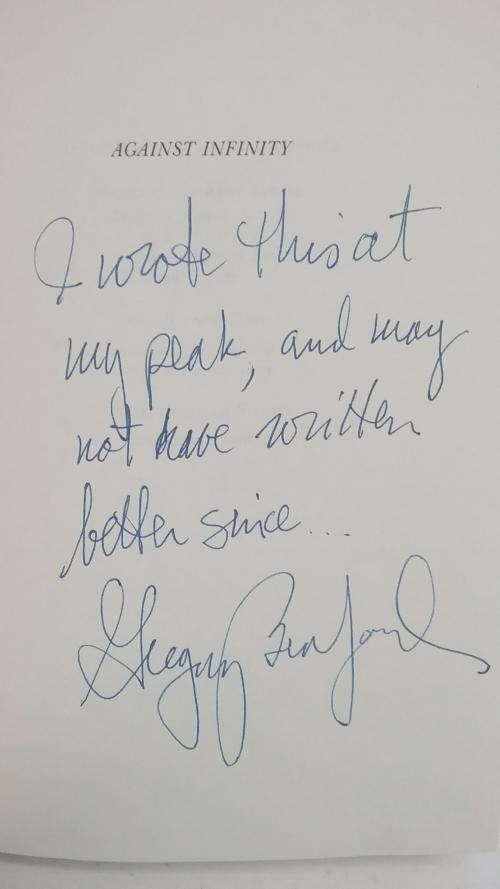 AGAINST INFINITY
I wrote this at
my peak, and may
not have written
better since...
Gregory Benford